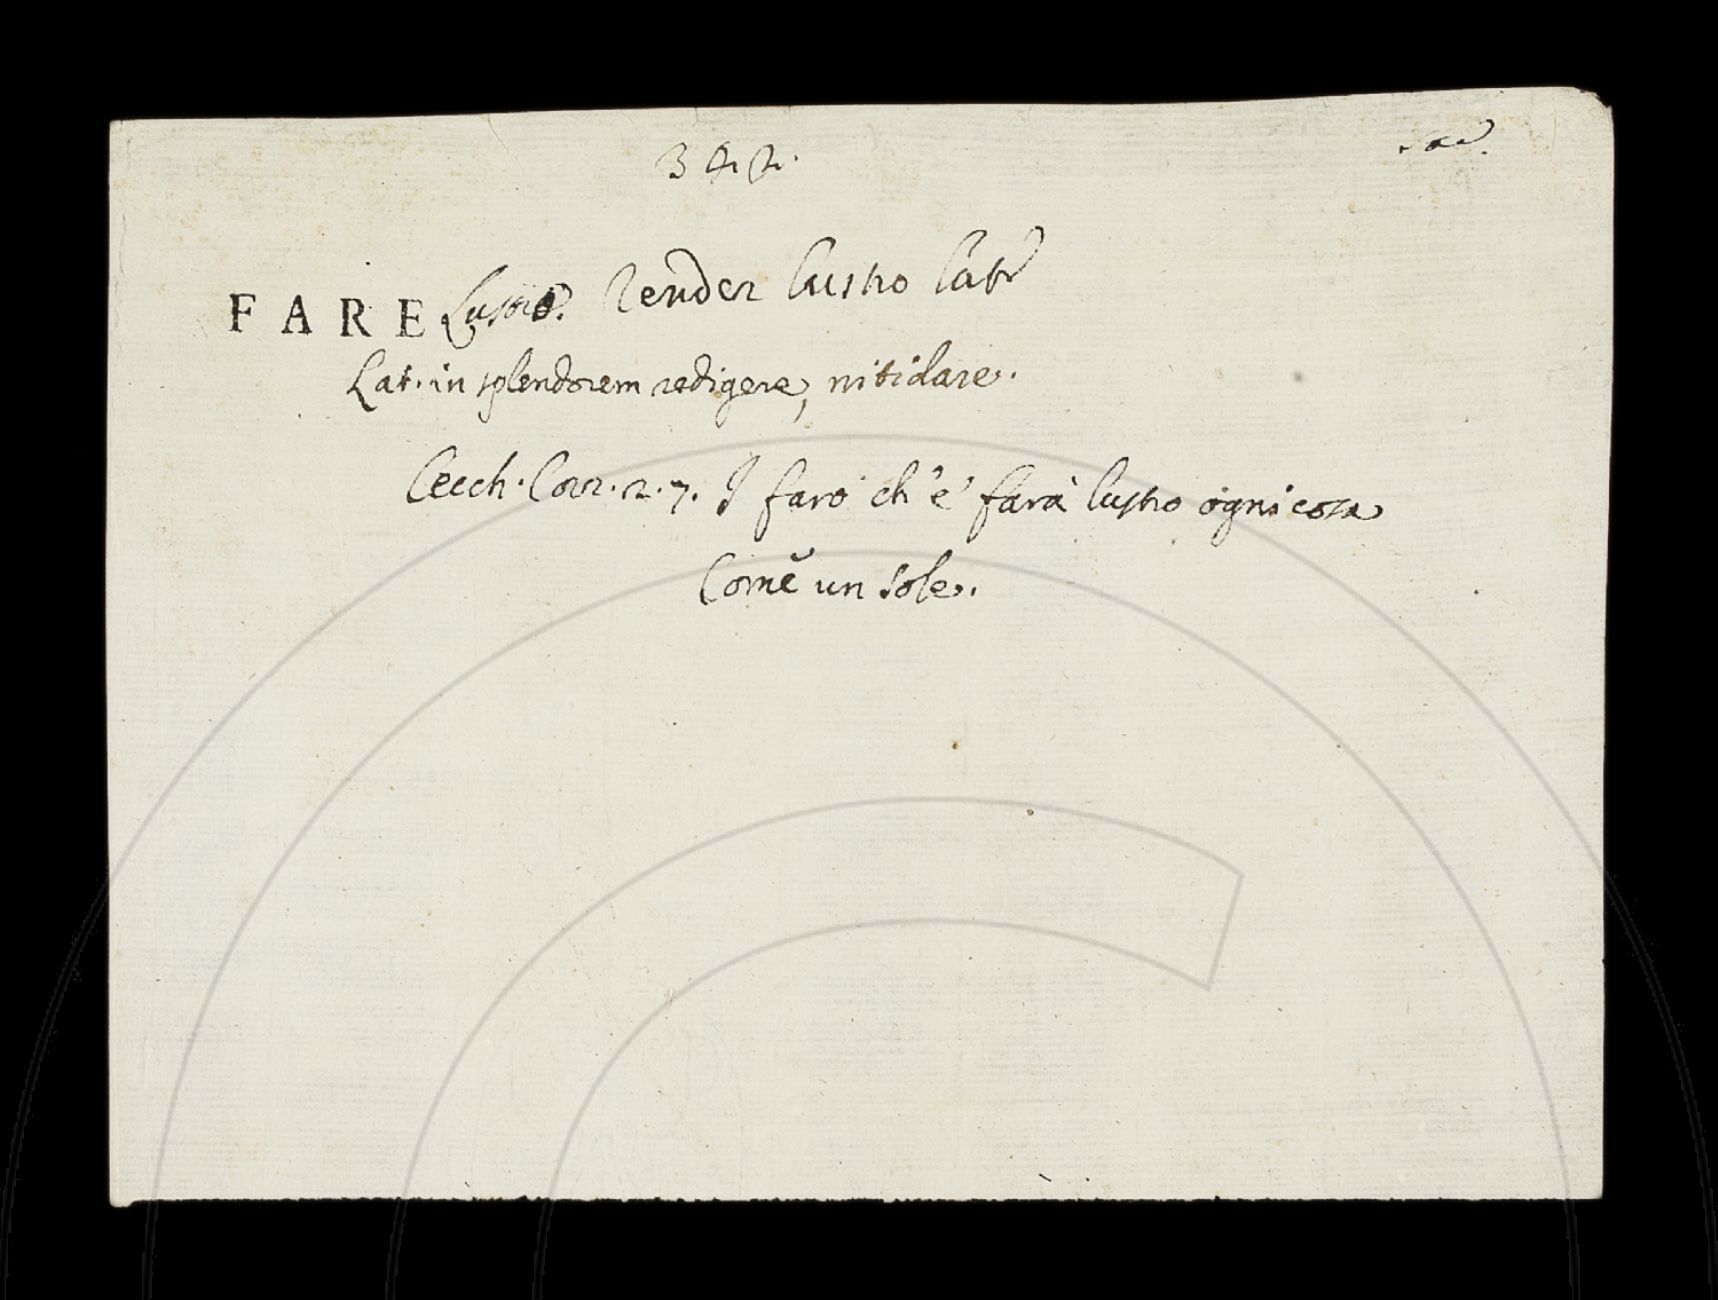 FARE Lustro. Render lustro Lat.
Lat. in splendorem redigere, nitidare.
Cecch. Corr. 2. 7. I farò ch'e' farà lustro ogni cosa
Come un sole.